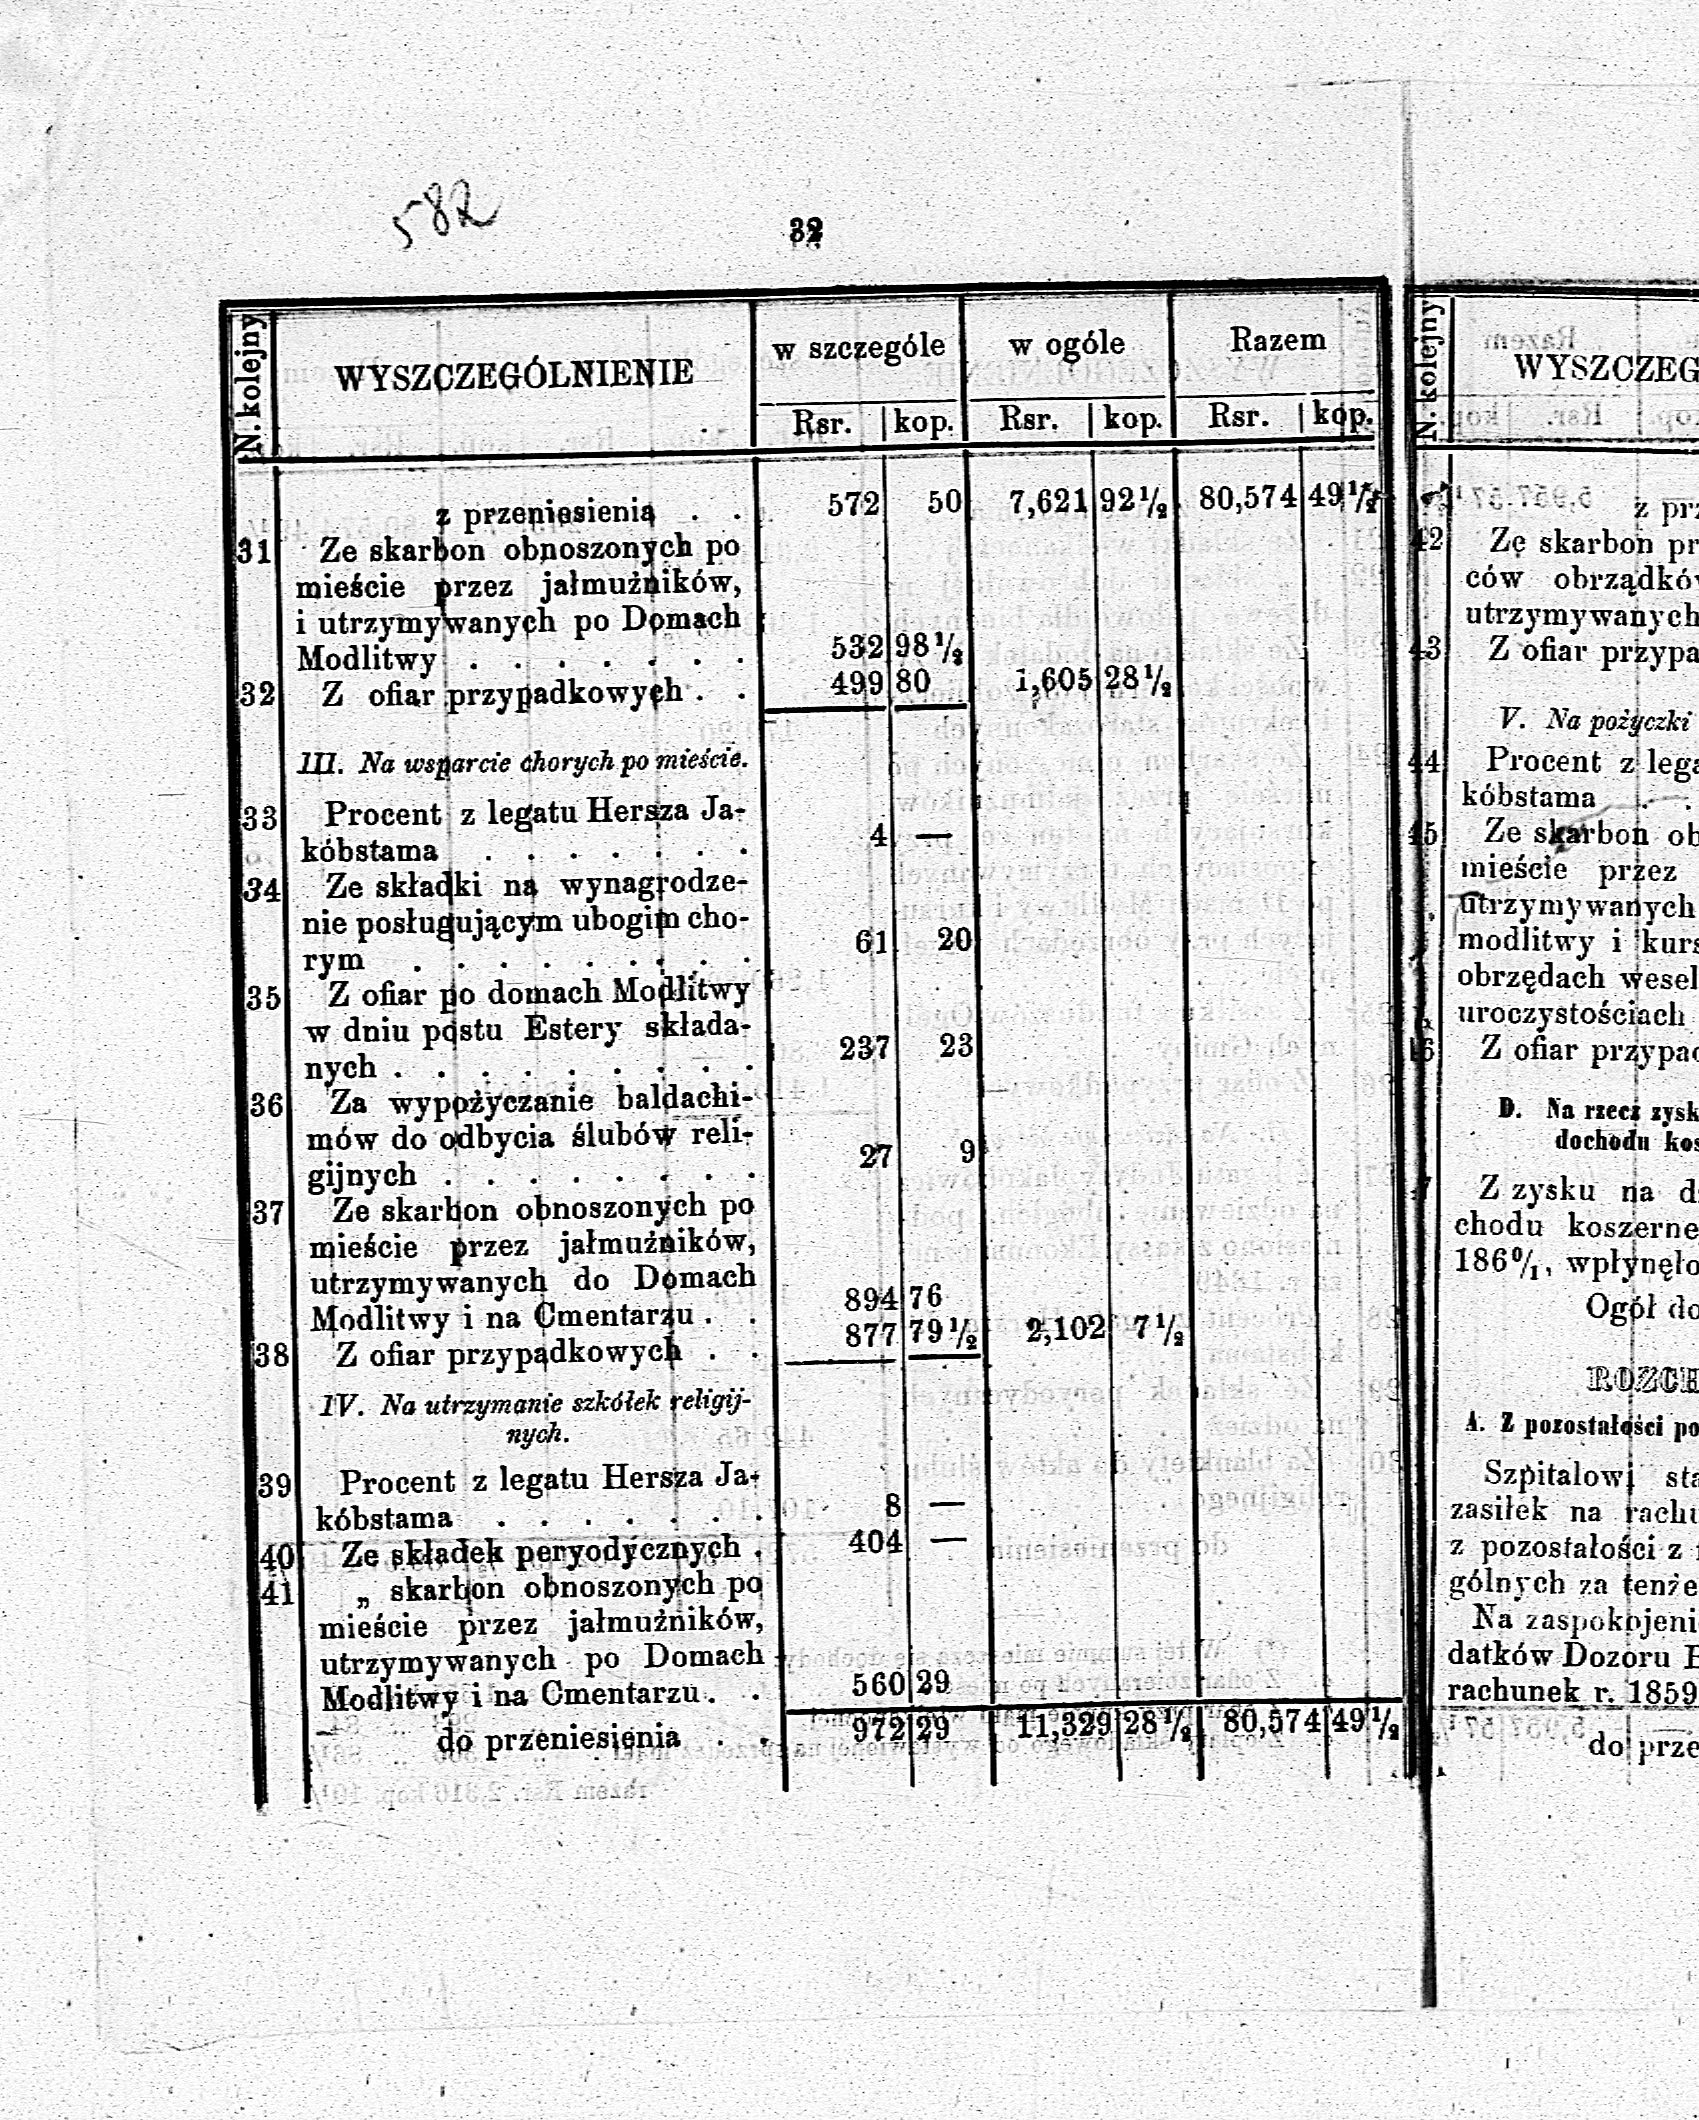 582
32
N. kolejny
WYSZCZEGÓLNIENIE
w szczególe w ogóle Razem
Rsr. kop. Rsr. kop. Rsr. kop.
z przeniesienia . . 572 50 7,621 92½ 80,574 49½
31 Ze skarbon obnoszonych po
mieście przez jałmużników,
i utrzymywanych po Domach
Modlitwy . . . . . . . 532 98½
32 Z ofiar przypadkowych . . 499 80 1,605 28½
III. Na wsparcie chorych po mieście.
33 Procent z legatu Hersza Ja-
kóbstama . . . . . . . 4 —
34 Ze składki na wynagrodze-
nie posługującym ubogim cho-
rym . . . . . . . . . 61 20
35 Z ofiar po domach Modlitwy
w dniu postu Estery składa-
nych . . . . . . . . . 237 23
36 Za wypożyczanie baldachi-
mów do odbycia ślubów reli-
gijnych . . . . . . . . 27 9
37 Ze skarbon obnoszonych po
mieście przez jałmużników,
utrzymywanych do Domach
Modlitwy i na Cmentarzu . . 894 76
38 Z ofiar przypadkowych . . 877 79½ 2,102 7½
IV. Na utrzymanie szkółek religij-
nych.
39 Procent z legatu Hersza Ja-
kóbstama . . . . . . . 8 —
40 Ze składek peryodycznych . 404 —
41 „ skarbon obnoszonych po
mieście przez jałmużników,
utrzymywanych po Domach
Modlitwy i na Cmentarzu . . 560 29
do przeniesienia . . 972 29 11,329 28½ 80,574 49½
N. kolejny
WYSZCZEG
z prz
42 Ze skarbon pr
ców obrządków
utrzymywanych
43 Z ofiar przypa
V. Na pożyczki
44 Procent z lega
kóbstama . .
45 Ze skarbon ob
mieście przez
utrzymywanych
modlitwy i kurs
obrzędach wesel
uroczystościach
46 Z ofiar przypad
D. Na rzecz zysk
dochodu kos
47 Z zysku na d
chodu koszerne
186⁰/₁, wpłynęło
Ogół do
ROZCH
A. Z pozostałości po
Szpitalowi sta
zasiłek na rachu
z pozostałości z
gólnych za tenże
Na zaspokojeni
datków Dozoru B
rachunek r. 1859
do prze